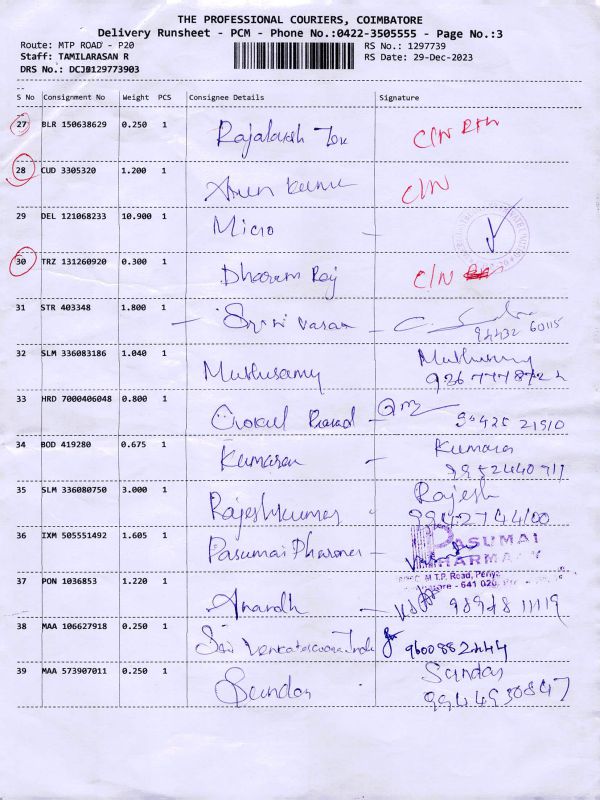 THE PROFESSIONAL COURIERS, COIMBATORE
Delivery Runsheet - PCM - Phone No.:0422-3505555 - Page No.:3
Route: MTP ROAD - P20 RS No.: 1297739
Staff: TAMILARASAN R RS Date: 29-Dec-2023
DRS No.: DCJB129773903
S No Consignment No Weight PCS Consignee Details Signature
27 BLR 150638629 0.250 1 C/N
28 CUD 3305320 1.200 1 Arun Kumar C/N
29 DEL 121068233 10.900 1 Micro
30 TRZ 131260920 0.300 1 Dharam Raj C/N
31 STR 403348 1.800 1 Srinivasan
94432 60115
32 SLM 336083186 1.040 1 Muthusamy Muthusamy
33 HRD 7000406048 0.800 1 Gokul Prasad
34 BOD 419280 0.675 1 Kumaran Kumaran
35 SLM 336080750 3.000 1 Rajeshkumar Rajesh
9942744100
36 IXM 505551492 1.605 1 Pasumai PASUMAI
PHARMACY
M.T.P. Road,
- 641 020
37 PON 1036853 1.220 1 Anandh
38 MAA 106627918 0.250 1 Sri 9600882444
39 MAA 573907011 0.250 1 Sundar Sundar